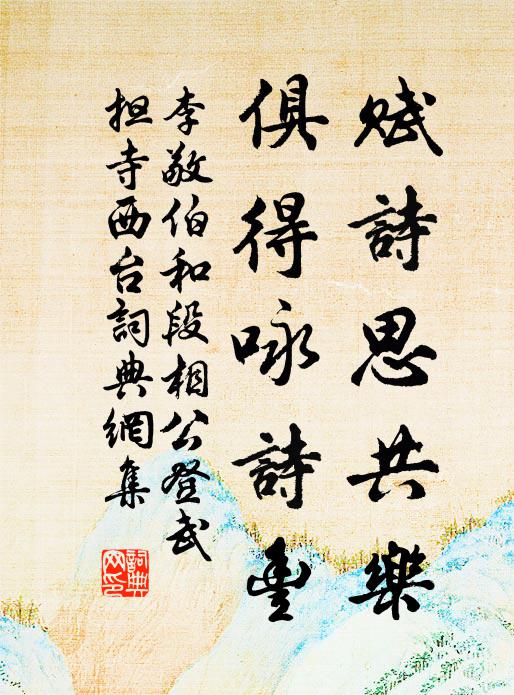 賦詩思共樂
俱得咏詩豊
李敬伯和段相公登武
担寺西台詞典網集
詞典
网印